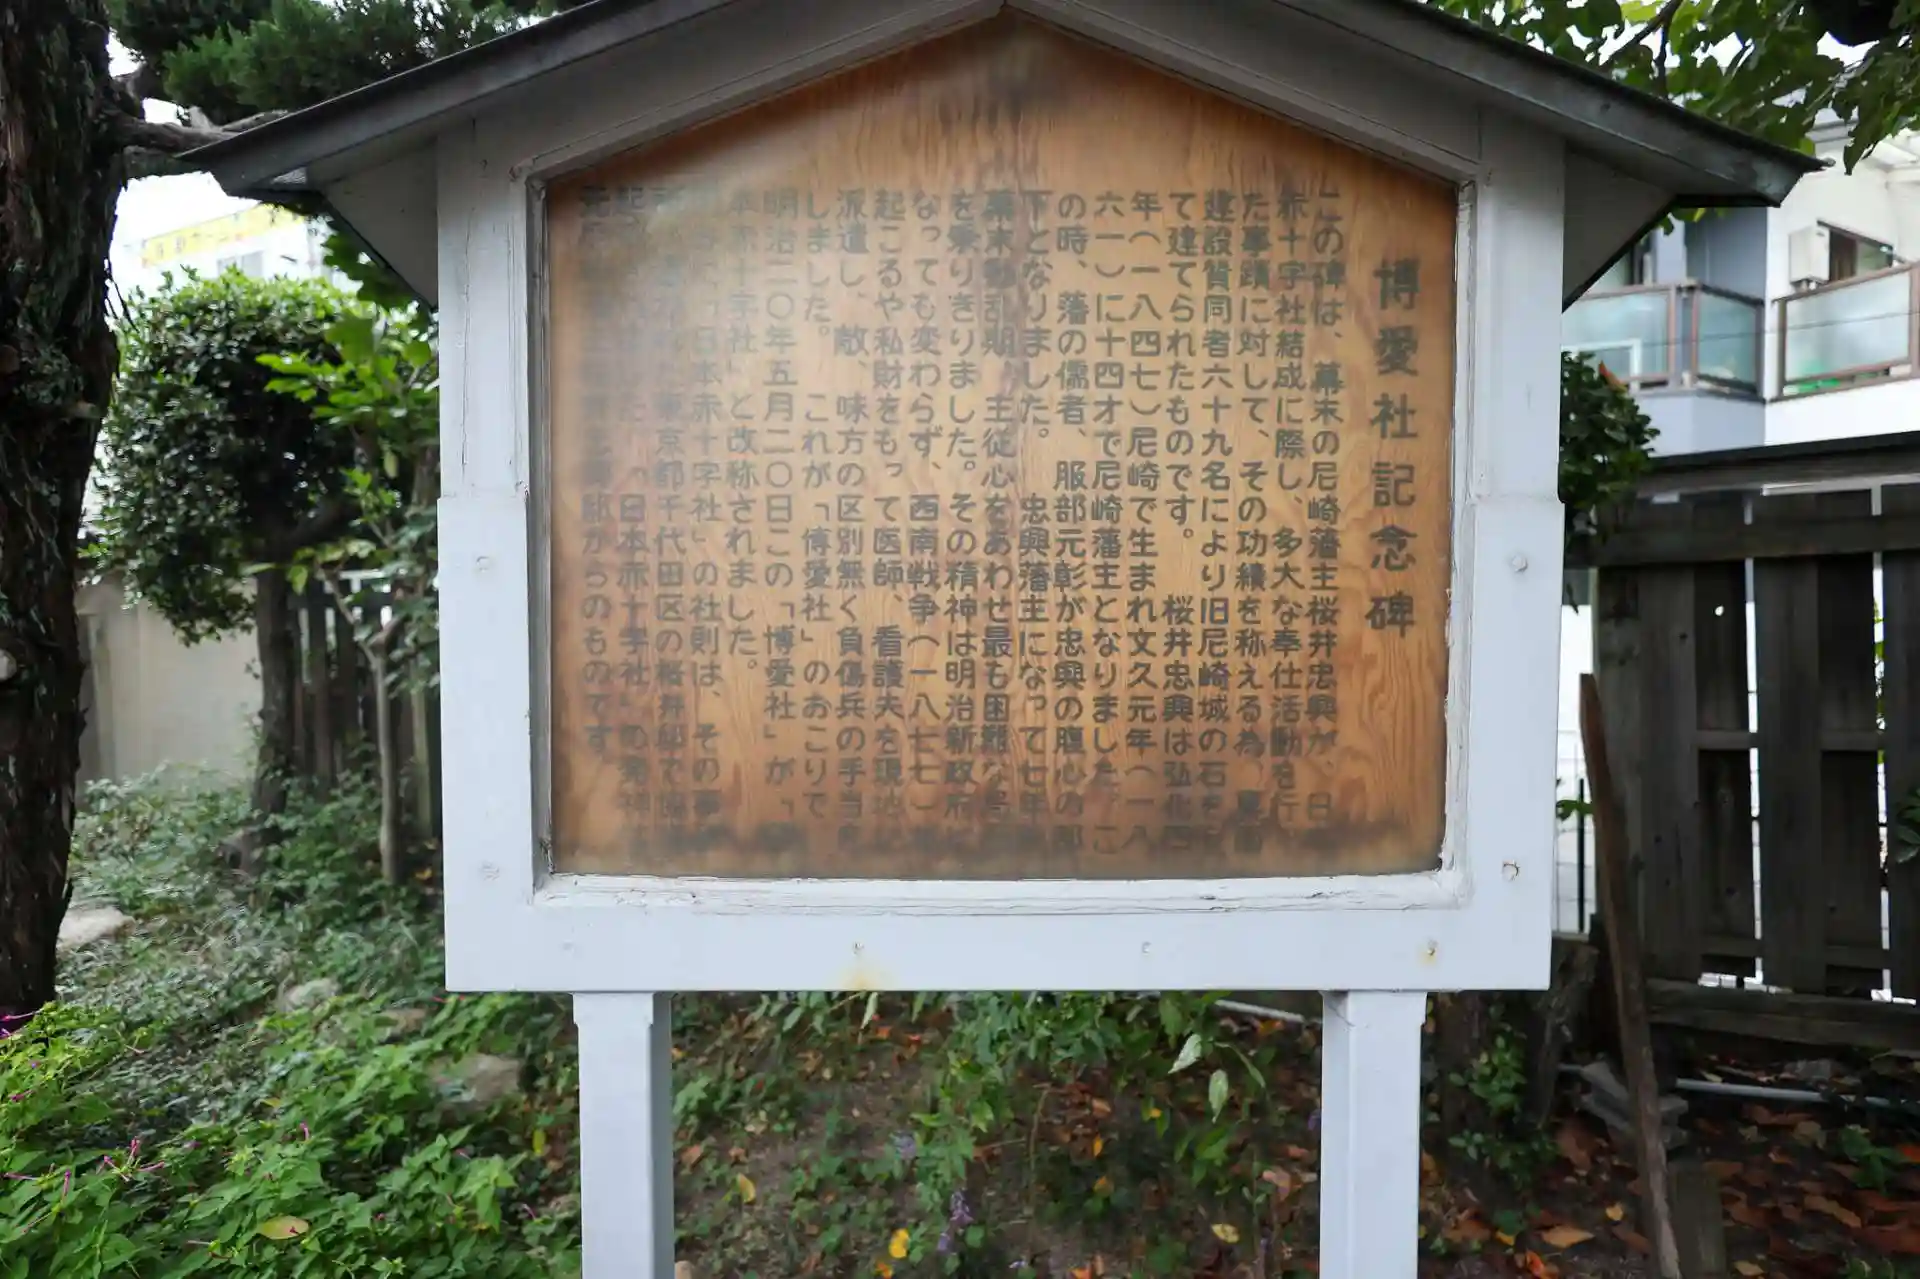 博愛社記念碑
この碑は、幕末の尼崎藩主桜井忠興が、日
赤十字社結成に際し、多大な奉仕活動を行
た事蹟に対して、その功績を称える為、
建設賛同者六十九名により旧尼崎城の石を
て建てられたものです。 桜井忠興は弘化四
年(一八四七)尼崎で生まれ文久元年(一八
六一)に十四才で尼崎藩主となりました。こ
の時、藩の儒者、服部元彰が忠興の腹心の部
下となりました。 忠興藩主になって七年
幕末動乱期、主従心をあわせ最も困難な
を乗りきりました。その精神は明治新政府
なっても変わらず、西南戦争(一八七七)
起こるや私財をもって医師、看護夫を現地
派遣し、敵、味方の区別無く負傷兵の手当を
しました。 これが「博愛社」のおこりで
明治二〇年五月二〇日この「博愛社」が「
本赤十字社」と改称されました。
「日本赤十字社」の社則は、その事
東京都千代田区の桜井邸で
た。「日本赤十字社」の発祥
邸からのものです。